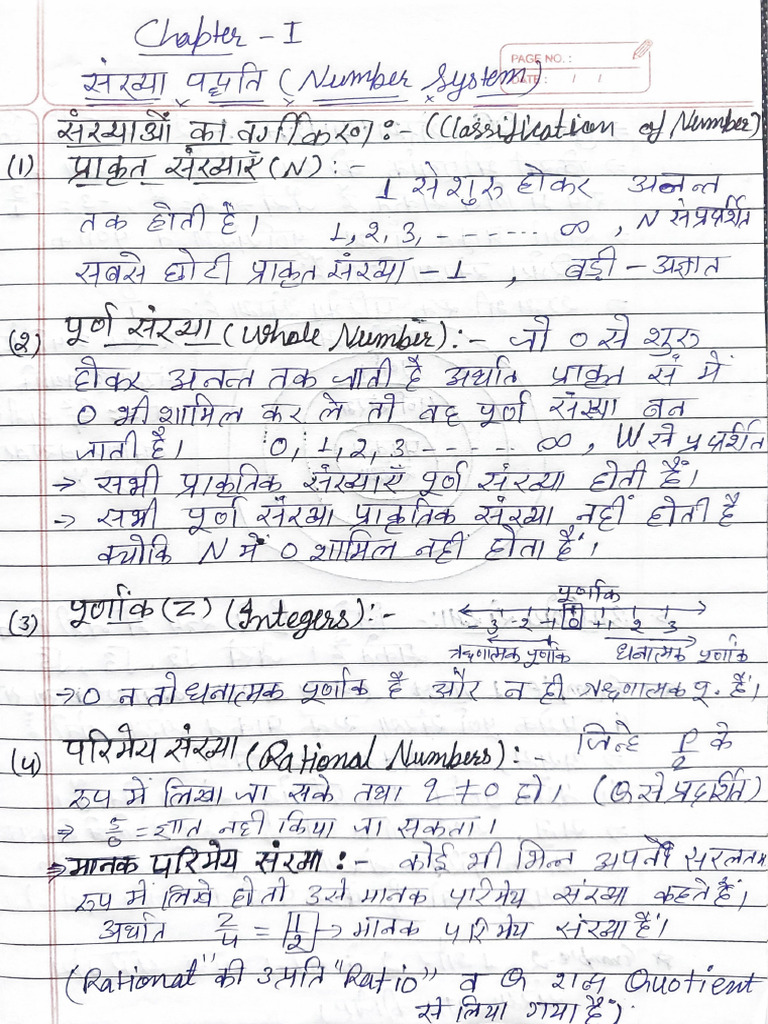 Chapter - I
PAGE NO. :
DATE : / /
संख्या पद्धति (Number System)
संख्याओं का वर्गीकरण :- (Classification of Number)
(1) प्राकृत संख्याएँ (N) :-
1 से शुरु होकर अनन्त
तक होती है। 1, 2, 3, - - - - - - ∞ , N से प्रदर्शित
सबसे छोटी प्राकृत संख्या - 1 , बड़ी - अज्ञात
(2) पूर्ण संख्या (Whole Number) :- जो 0 से शुरु
होकर अनन्त तक जाती है अर्थात प्राकृत सं में
0 भी शामिल कर ले तो वह पूर्ण संख्या बन
जाती है। 0, 1, 2, 3 - - - - - ∞ , W से प्रदर्शित
→ सभी प्राकृतिक संख्याएँ पूर्ण संख्या होती हैं।
→ सभी पूर्ण संख्या प्राकृतिक संख्या नहीं होती है
क्योकि N में 0 शामिल नहीं होता है।
पूर्णांक
(3) पूर्णांक (Z) (Integers) :-
-3 -2 -1 0 +1 2 3
ऋणात्मक पूर्णांक धनात्मक पूर्णांक
→ 0 न तो धनात्मक पूर्णांक है और न ही ऋणात्मक पू. है।
(4) परिमेय संख्या (Rational Numbers) :- जिन्हे p/q के
रूप में लिखा जा सके तथा q ≠ 0 हो। (Q से प्रदर्शित)
⇒ 5/0 = ज्ञात नही किया जा सकता।
⇒ मानक परिमेय संख्या :- कोई भी भिन्न अपने सरलतम
रूप में लिखे हो तो उसे मानक परिमेय संख्या कहते हैं।
अर्थात 2/4 = 1/2 → मानक परिमेय संख्या है।
(Rational" की उत्पति "Ratio" व Q शब्द Quotient
से लिया गया है)